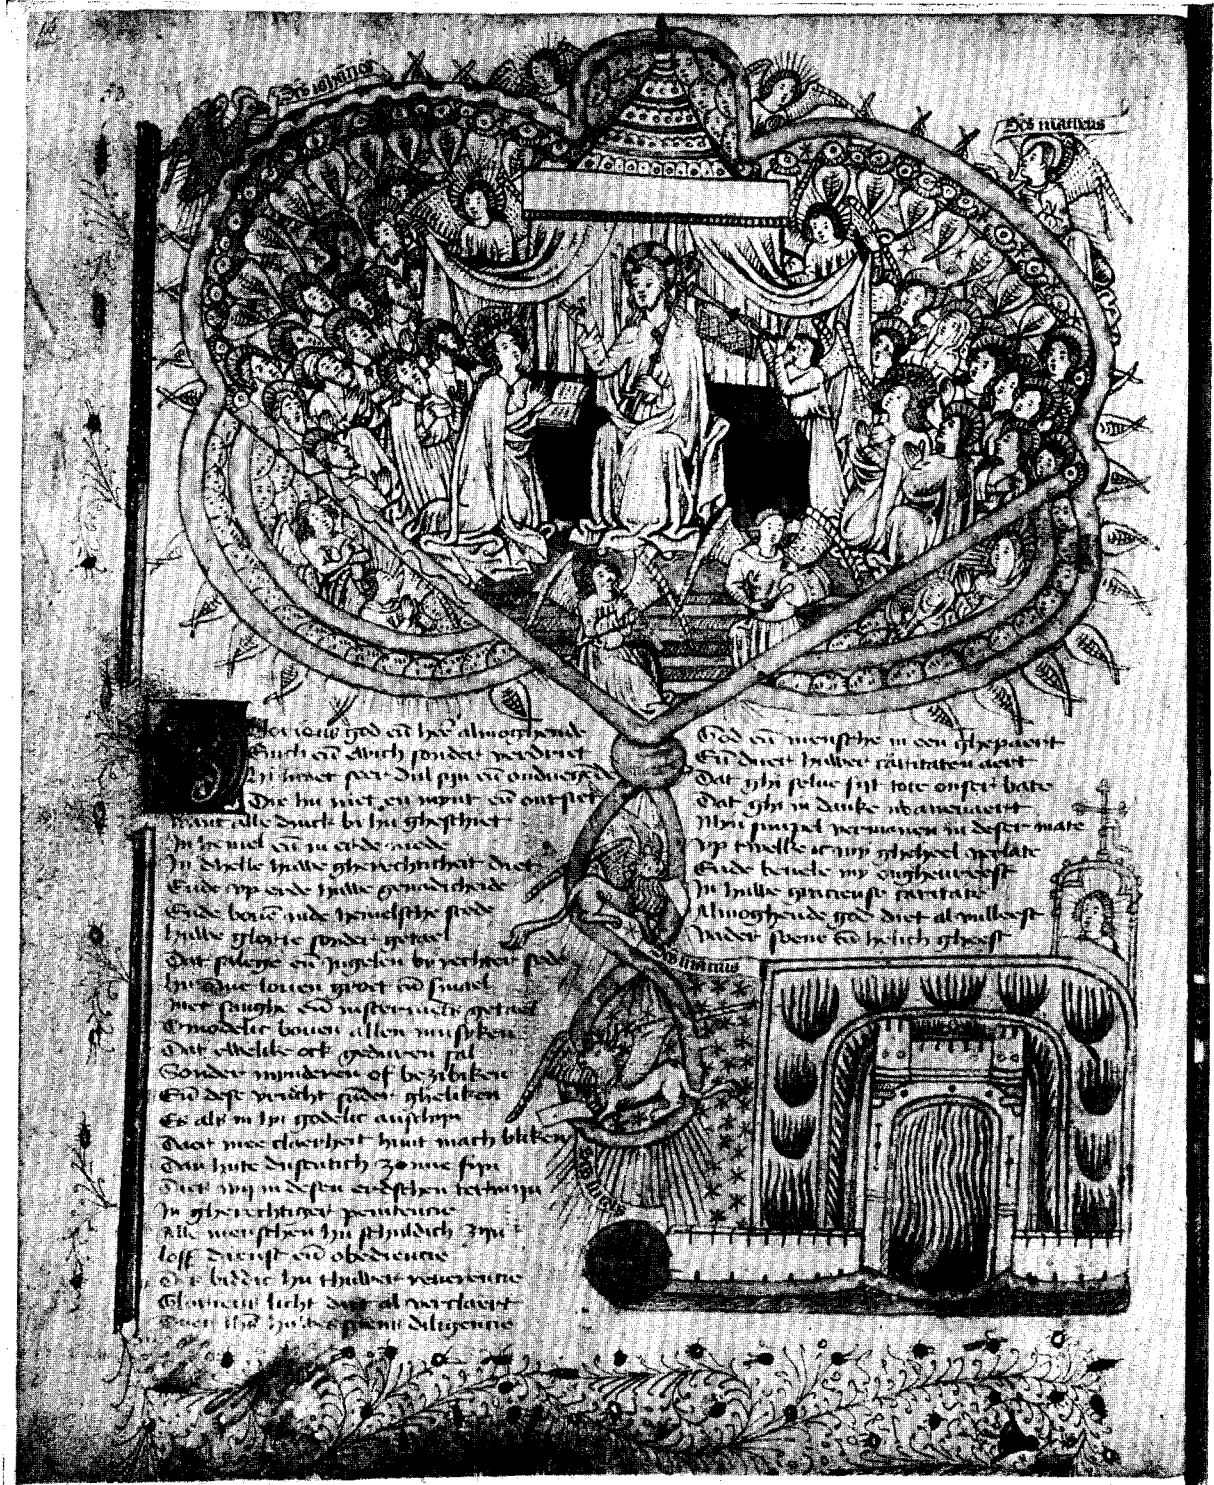 Scs iohannes
Scs matteus
Glorieus god eñ heer almoghende
eñ sonder verdriet
Hi moet seer dul sijn eñ
Die hu niet en mynt eñ ontsiet
want alle druck bi hu gheschiet
In hemel eñ in erde mede
In dhelle huwe gherechticheit diet
Ende up erde huwe ghenadicheide
Ende boven inde hemelsche stede
huwe glorie sonder getael
Dat salege eñ ingelen by rechter sede
hu loven groet eñ smael
Met sanghe eñ instrumets getael
boven allen musyken
Dat ewelike oek geduren sal
Sonder minderen of beziviken
Eñ dese vrucht sonder gheliken
Es als in hu godelic anschijn
Daer mee claerheit huut mach bliken
Dan hute dusentich zonne sijn
Dies wij in desen erdschen termijn
In gherechtiger penitencie
Alle menschen hu schuldich zijn
loff dienst eñ obediencie
Dit biddic hu thuwer reverencie
Glorieus licht dat al verclaert
diligencie
God eñ mensche in een ghepaert
Eñ duer huwer caritaten aert
Dat ghi selve sijt tote onser bate
Dat ghi in danke
Mijn simpel vermanen in deser mate
Up twelke ic my gheheel verlate
Ende bevele my ongheveest
In huwe gracieuse caritate
Almoghende god diet al vulleest
Vader soene eñ helich gheest
Scs marcus
Scs lucas